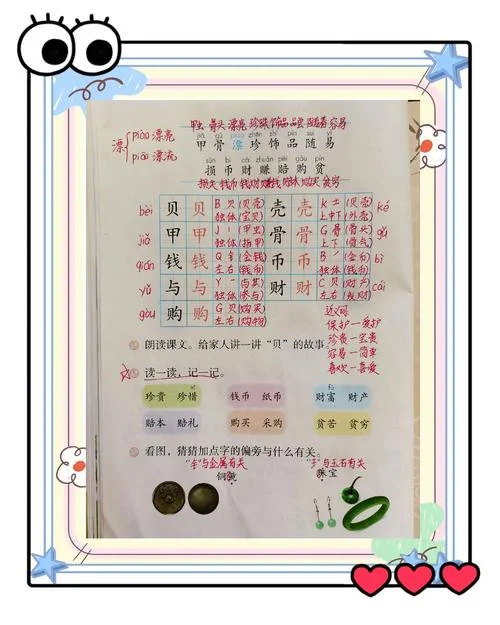 甲虫 骨头 漂亮 珍珠 饰品 品尝 随着 容易
jiǎ gǔ piāo zhēn shì pǐn suí yì
甲 骨 漂 珍 饰 品 随 易
漂 piào 漂亮
piāo 漂流
sǔn bì cái zhuàn péi gòu pín
损 币 财 赚 赔 购 贫
损失 钱币 钱财 赚钱 赔本 购买 贫穷
bèi 贝 贝 B 贝 (贝壳) 独体 (宝贝) 壳 壳 K 士 (贝壳) 上中下 (外壳) ké
jiǎ 甲 甲 J 丨 (甲虫) 独体 (指甲) 骨 骨 G 骨 (骨头) 上下 (骨气) gǔ
qián 钱 钱 Q 钅 (金钱) 左右 (钱币) 币 币 B 丿 (金币) 独体 (钱币) bì
yǔ 与 与 Y 一 (与其) 独体 (参与) 财 财 C 贝 (财产) 左右 (发财) cái
gòu 购 购 G 贝 (购买) 左右 (购物)
近义词
保护—爱护
珍贵—宝贵
容易—简单
喜欢—喜爱
朗读课文。给家人讲一讲“贝”的故事。
读一读，记一记。
珍贵 珍惜 钱币 纸币 财富 财产
赔本 赔礼 购买 采购 贫苦 贫穷
看图，猜猜加点字的偏旁与什么有关。
“钅”与金属有关 “王”与玉石有关
铜镜 珠宝